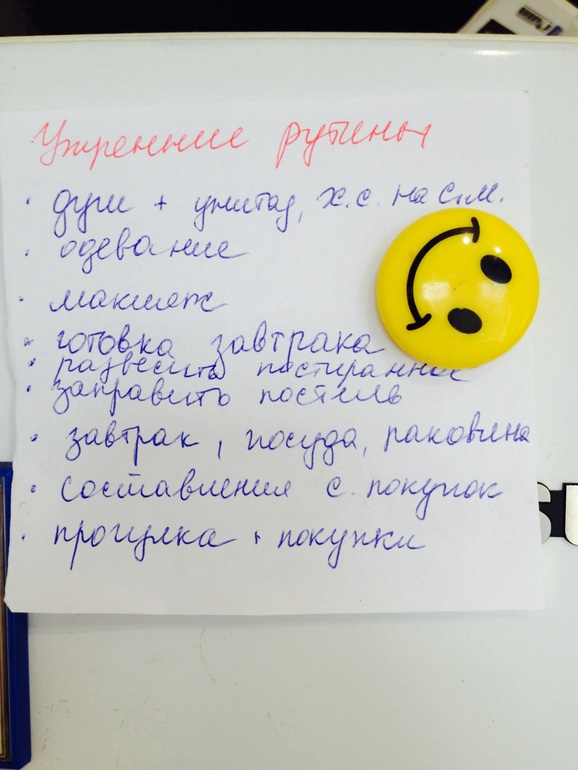 Утренние рутины
· душ + унитаз, х.с. на с.м.
· одевание
· макияж
· готовка завтрака
· развесить постиранное
· заправить постель
· завтрак, посуда, раковина
· составления с. покупок
· прогулка + покупки